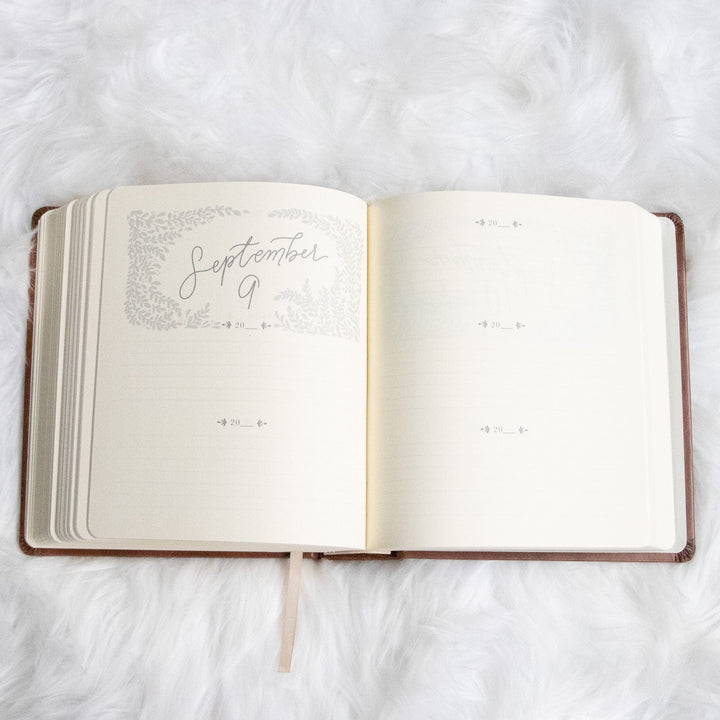 September
9
20__
20__
20__
20__
20__